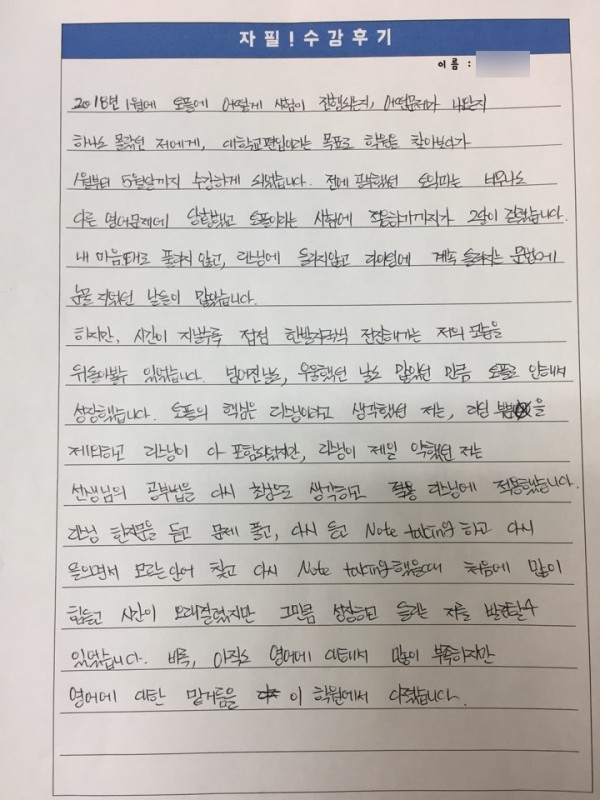 자필! 수강후기
이름 :
2018년 1월에 토플에 어떻게 시험이 진행되는지, 어떤문제가 나오는지
하나도 몰랐던 저에게, 대학교편입이라는 목표로 학원을 찾아보다가
1월부터 5월달까지 수강하게 되었습니다. 전에 공부했던 토익과는 너무나도
다른 영어문제에 당황했고 토플이라는 시험에 적응하기까지가 2달이 걸렸습니다.
내 마음대로 풀리지 않고, 리스닝에 들리지않고 라이팅에 계속 틀리는 문법에
눈물 지었던 날들이 많았습니다.
하지만, 시간이 지날수록 점점 한발자국씩 전진해가는 저의 모습을
뒤돌아볼수 있었습니다. 넘어진날도, 우울했던 날도 많았던 만큼 토플로 인해서
성장했습니다. 토플의 핵심은 리스닝이라고 생각했던 저는, 리딩 을
제외하고 리스닝이 다 포함되었지만, 리스닝이 제일 약했던 저는
선생님의 공부법을 다시 초심으로 생각하고 리스닝에 적용했습니다.
리스닝 한지문을 듣고 문제 풀고, 다시 듣고 Note taking을 하고 다시
들으면서 모르는단어 찾고 다시 Note taking했을때 처음에 많이
힘들고 시간이 오래걸렸지만 그만큼 성장하고 들리는 저를 발견할수
있었습니다. 비록, 아직도 영어에 대해서 많이 부족하지만
영어에 대한 밑거름을 이 학원에서 다졌습니다.